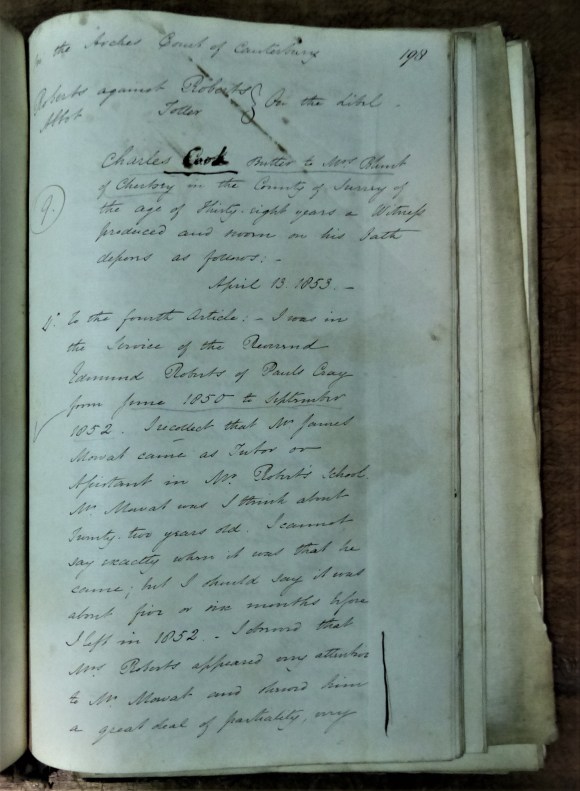 In the Arches Court of Canterbury 198
Roberts against Roberts } On the Libel -
Abbot Toller
Charles Cook Butler to Mrs Blunt
9. of Chertsey in the County of Surrey of
the age of Thirty-eight years a Witness
produced and sworn on his Oath
deposes as follows: -
April 13. 1853. -
4. To the fourth Article: - I was in
the Service of the Reverend
Edmund Roberts of Pauls Cray
from June 1850 to September
1852. I recollect that Mr James
Mowat came as Tutor or
Assistant in Mr. Robert's School
Mr. Mowat was I think about
Twenty-two years old. I cannot
say exactly when it was that he
came; but I should say it was
about five or six months before
I left in 1852. - I observed that
Mrs Roberts appeared very attentive
to Mr Mowat and showed him
a great deal of partiality, very